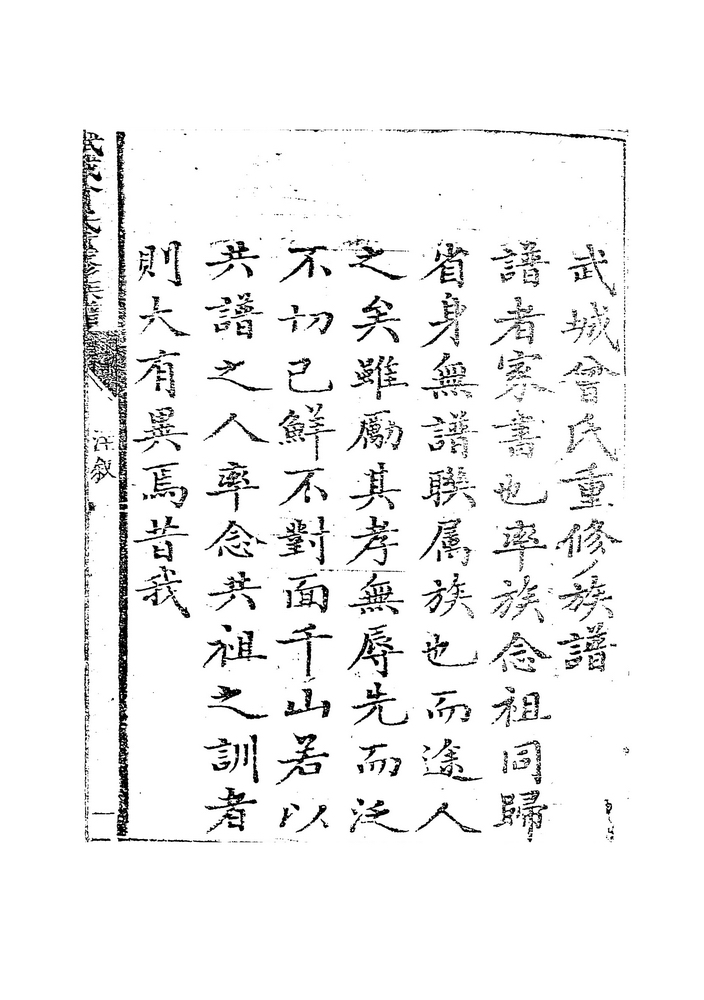 武城曾氏重修族譜
譜者家書也率族念祖同歸
省身無譜聯属族也而途人
之矣雖勵其孝無辱先而泛
不切已鮮不對面千山若以
共譜之人率念共祖之訓者
則大有異焉昔我
武城曾氏重修族譜
汪敘
一